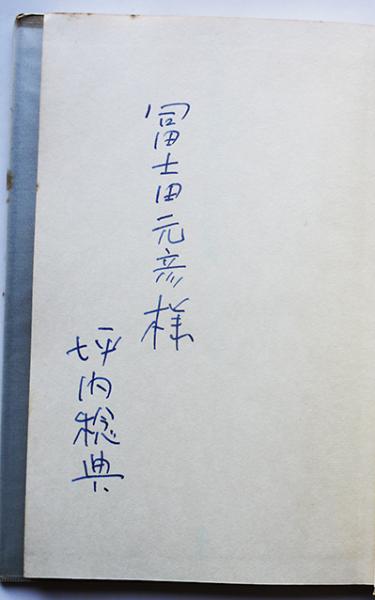 冨士田元彦様
坪内稔典